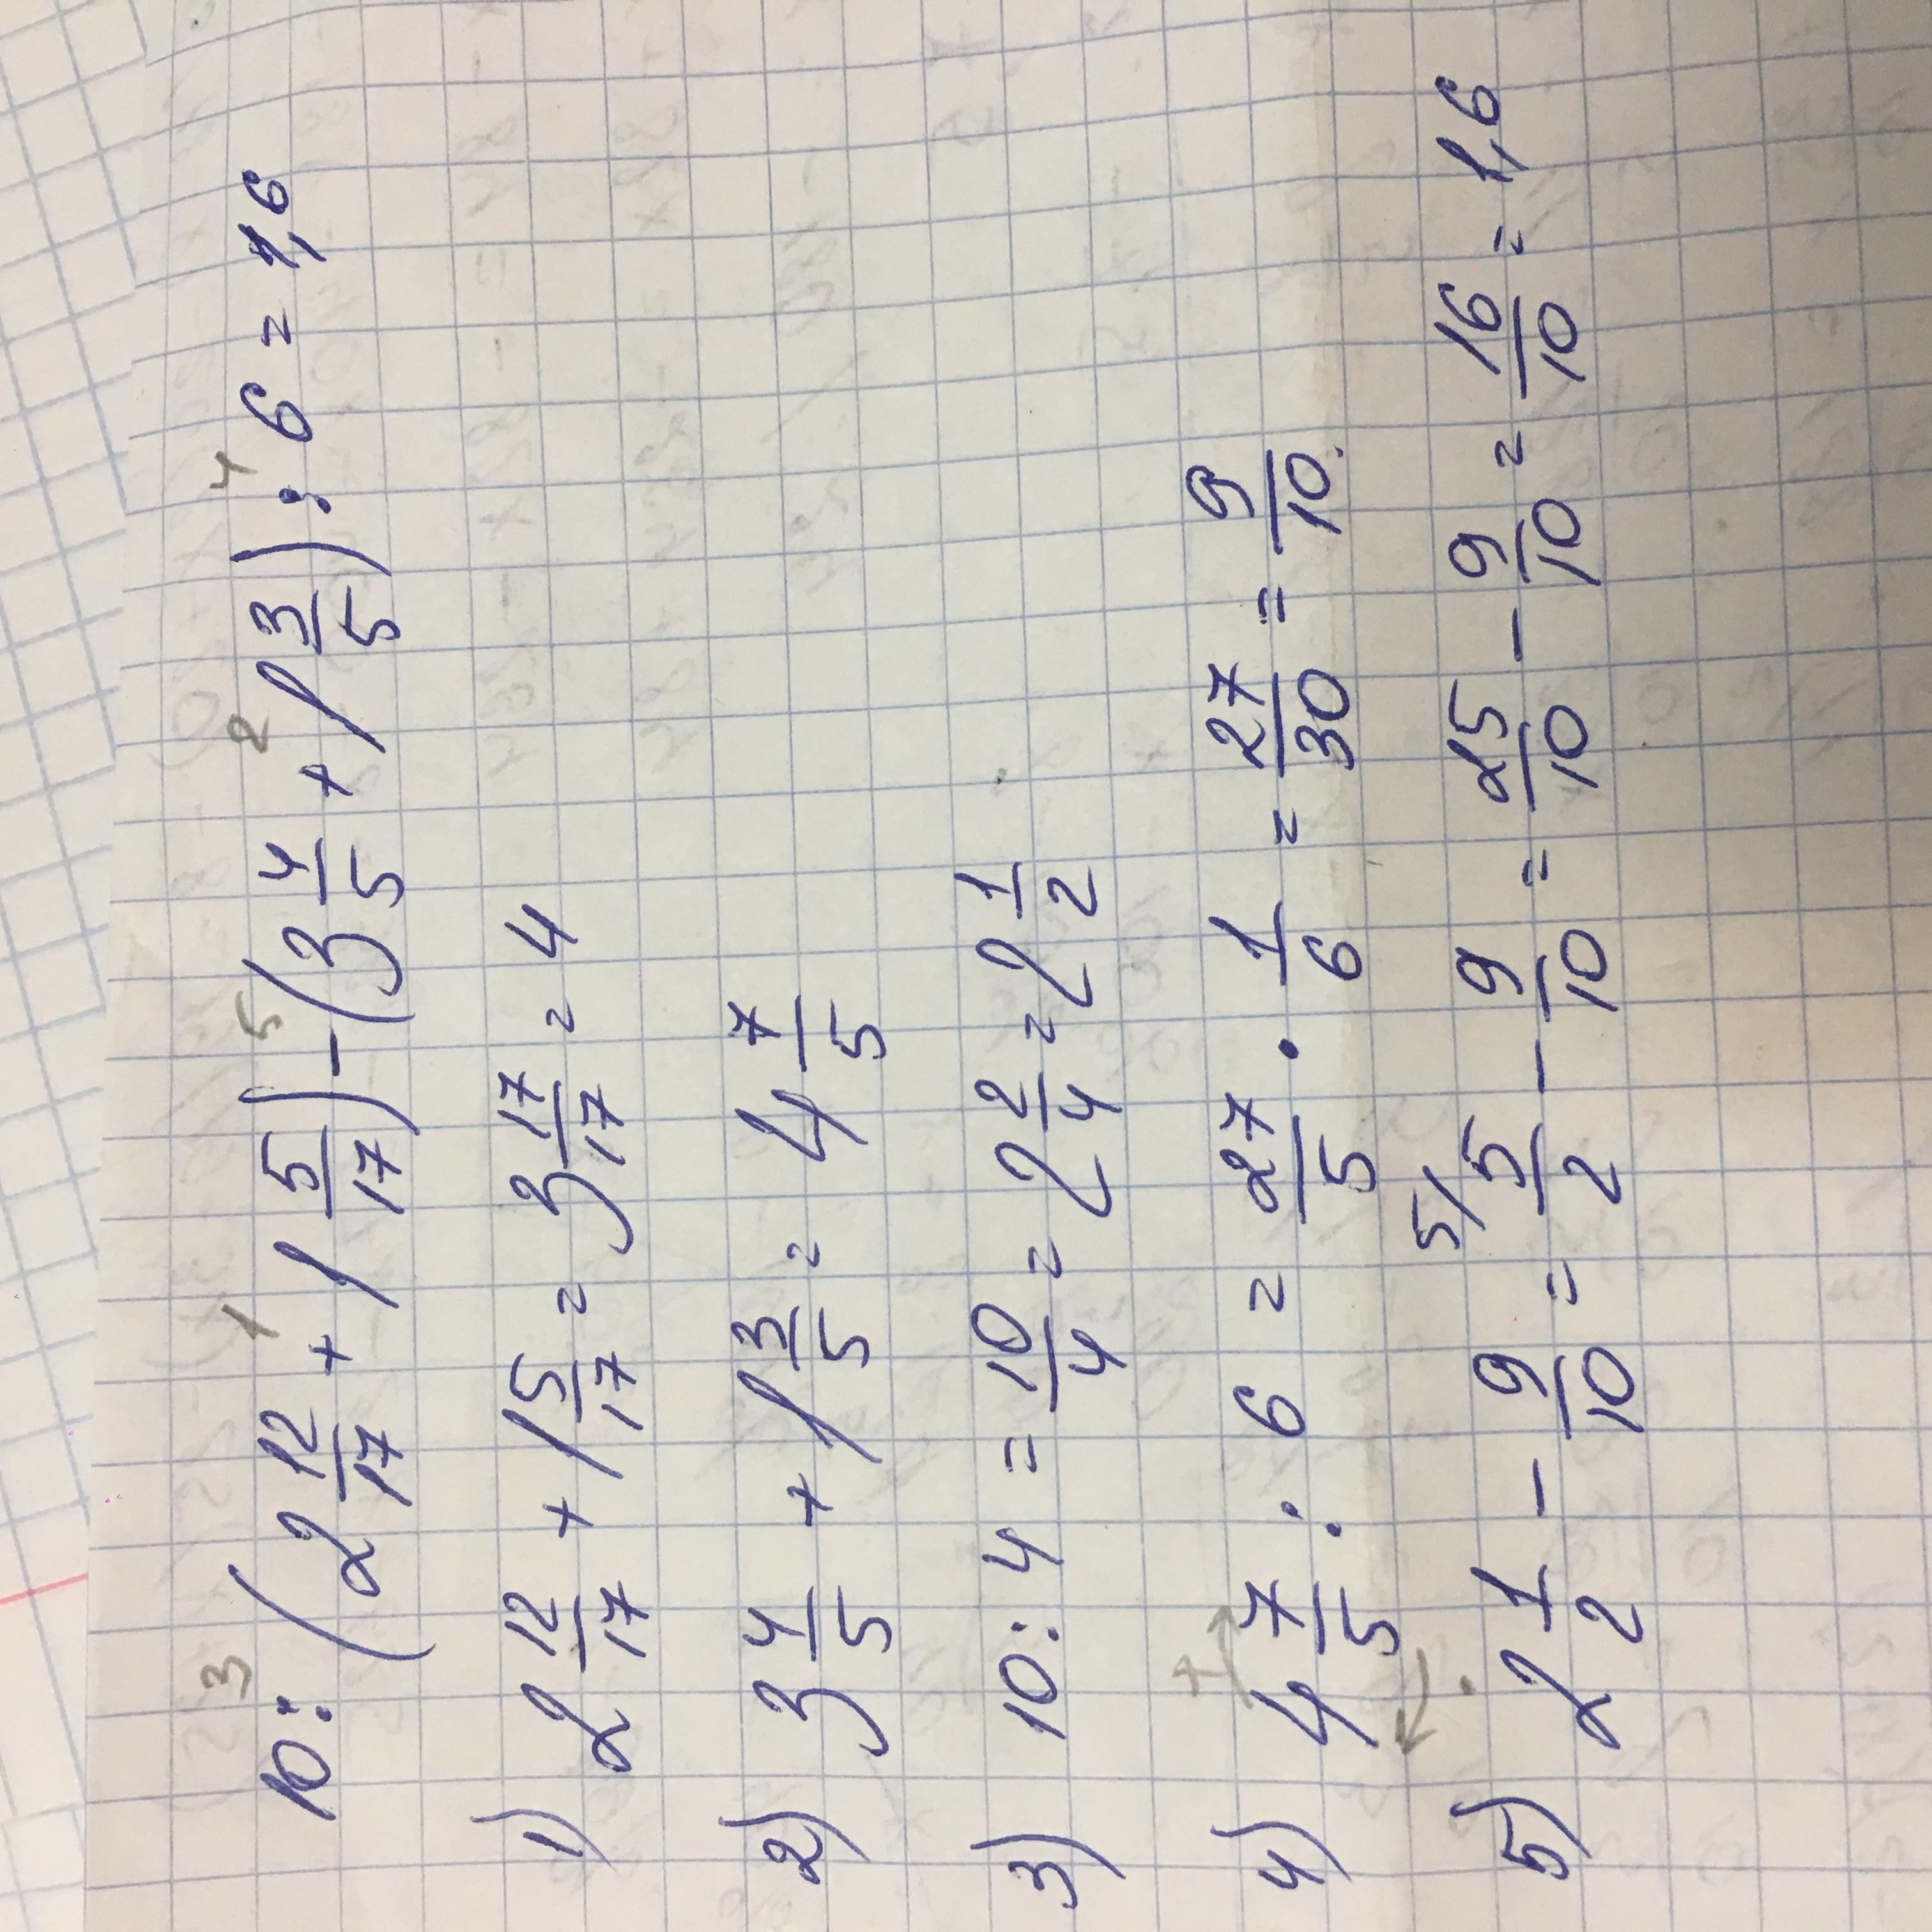 10 : (2 12/17 + 1 5/17) - (3 4/5 + 1 3/5) : 6 = 1,6
3 1 5 2 4
1) 2 12/17 + 1 5/17 = 3 17/17 = 4
2) 3 4/5 + 1 3/5 = 4 7/5
3) 10 : 4 = 10/4 = 2 2/4 = 2 1/2
4) 4 7/5 : 6 = 27/5 · 1/6 = 27/30 = 9/10.
5) 2 1/2 - 9/10 = 5/ 5/2 - 9/10 = 25/10 - 9/10 = 16/10 = 1,6